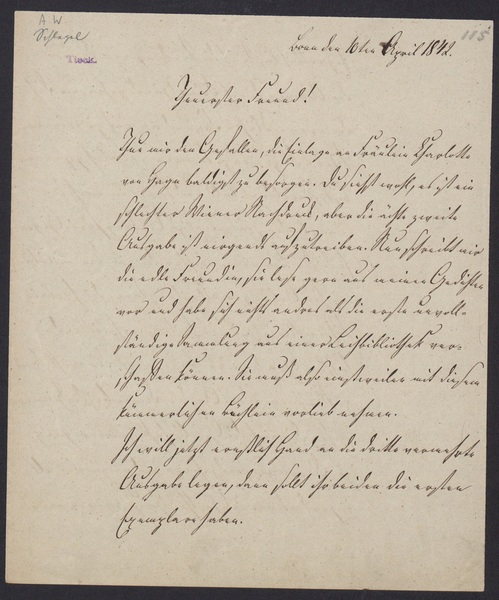 A. W.
Schlegel
Tieck.
115
Bonn den 10ten April 1842.
Theuerster Freund!
Thue mir den Gefallen, die Einlage an Fräulein Charlotte
von Hagn baldigst zu besorgen. Du siehst wohl, es ist ein
schlechter Wiener Nachdruck, aber die ächte zweite
Ausgabe ist nirgends aufzutreiben. Nun schreibt mir
die edle Freundin, sie lese gern aus meinen Gedichten
vor und habe sich nichts andres als die erste unvoll-
ständige Sammlung aus einer Leihbibliothek ver-
schaffen können. Sie muß also einstweilen mit diesem
kümmerlichen Büchlein vorlieb nehmen.
Ich will jetzt ernstlich Hand an die dritte vermehrte
Ausgabe legen, dann sollt ihr beiden die ersten
Exemplare haben.